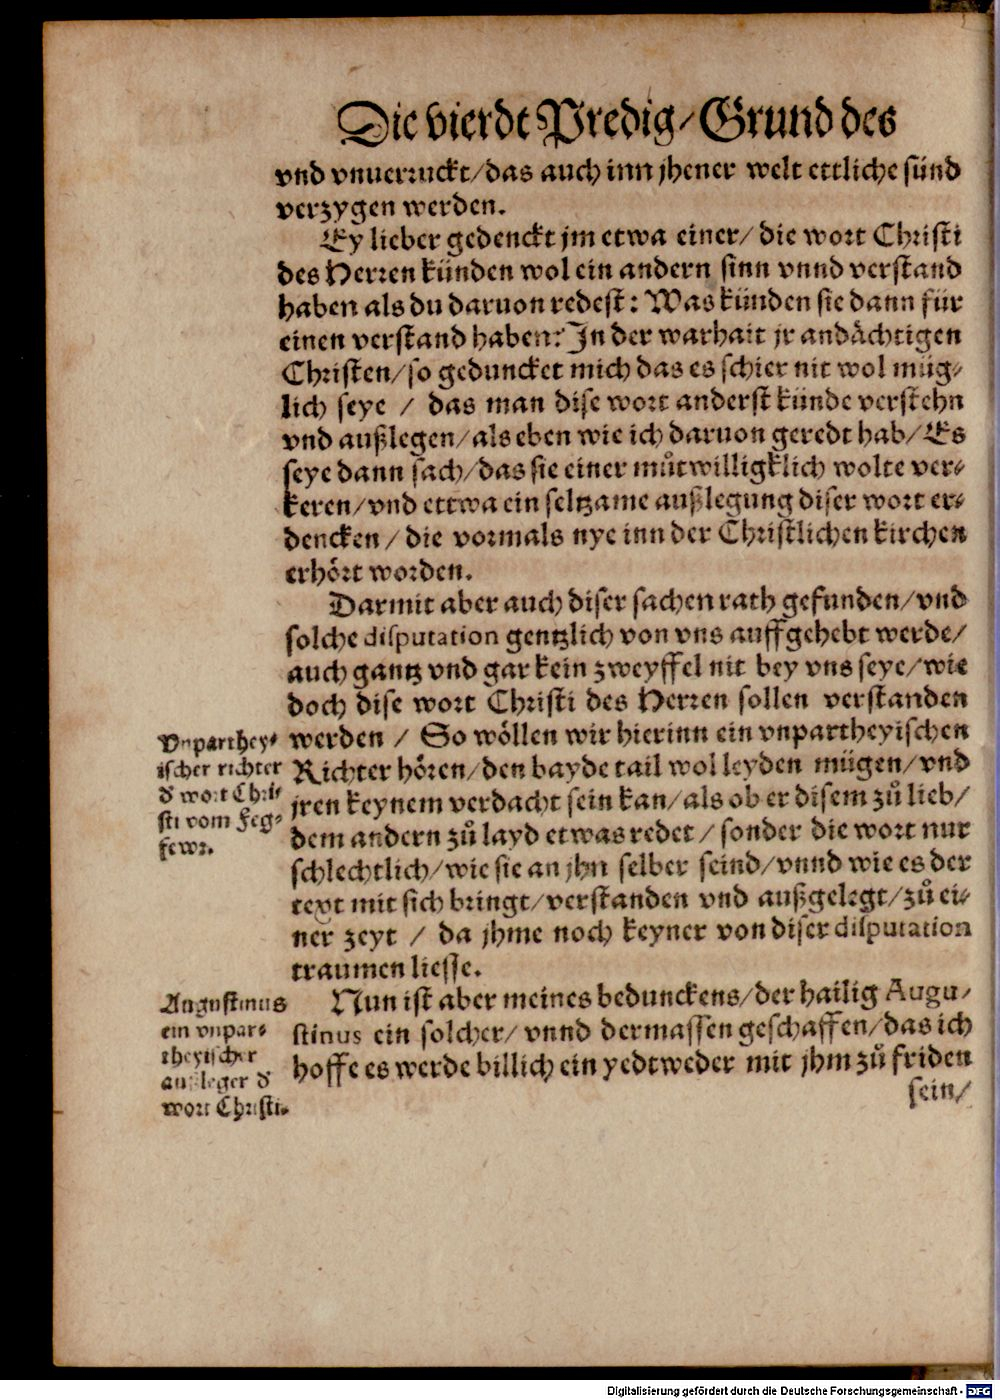 Die vierdt Predig/Grund des
vnd vnuerruckt/das auch inn jhener welt ettliche sünd
verzygen werden.
Ey lieber gedenckt jm etwa einer/ die wort Christi
des Herren künden wol ein andern sinn vnnd verstand
haben als du daruon redest: Was künden sie dann für
einen verstand haben? In der warhait jr andächtigen
Christen/so geduncket mich das es schier nit wol müg-
lich seye / das man dise wort anderst künde verstehn
vnd außlegen/als eben wie ich daruon geredt hab/ Es
seye dann sach/das sie einer můtwilligklich wolte ver-
keren/vnd ettwa ein seltzame außlegung diser wort er-
dencken/ die vormals nye inn der Christlichen kirchen
erhört worden.
Darmit aber auch diser sachen rath gefunden/vnd
solche disputation gentzlich von vns auffgehebt werde/
auch gantz vnd gar kein zweyffel nit bey vns seye/wie
doch dise wort Christi des Herren sollen verstanden
werden / So wöllen wir hierinn ein vnpartheyischen
Richter hören/den bayde tail wol leyden mügen/vnd
jren keynem verdacht sein kan/als ob er disem zů lieb/
dem andern zů layd etwas redet/ sonder die wort nur
schlechtlich/wie sie an jhn selber seind/vnnd wie es der
text mit sich bringt/verstanden vnd außgelegt/zů ei-
ner zeyt / da jhme noch keyner von diser disputation
traumen liesse.
Vnparthey-
ischer richter
d wort Chri-
sti vom Feg-
fewr.
Nun ist aber meines beduncke​ns/der hailig Augu-
stinus ein solcher/ vnnd dermassen geschaffen/das ich
hoffe es werde billich ein yedtweder mit jhm zů friden
sein/
Augustinus
ein vnpar-
theyischer
außleger d
wort Christi.
Digitalisierung gefördert durch die Deutsche Forschungsgemeinschaft - DFG